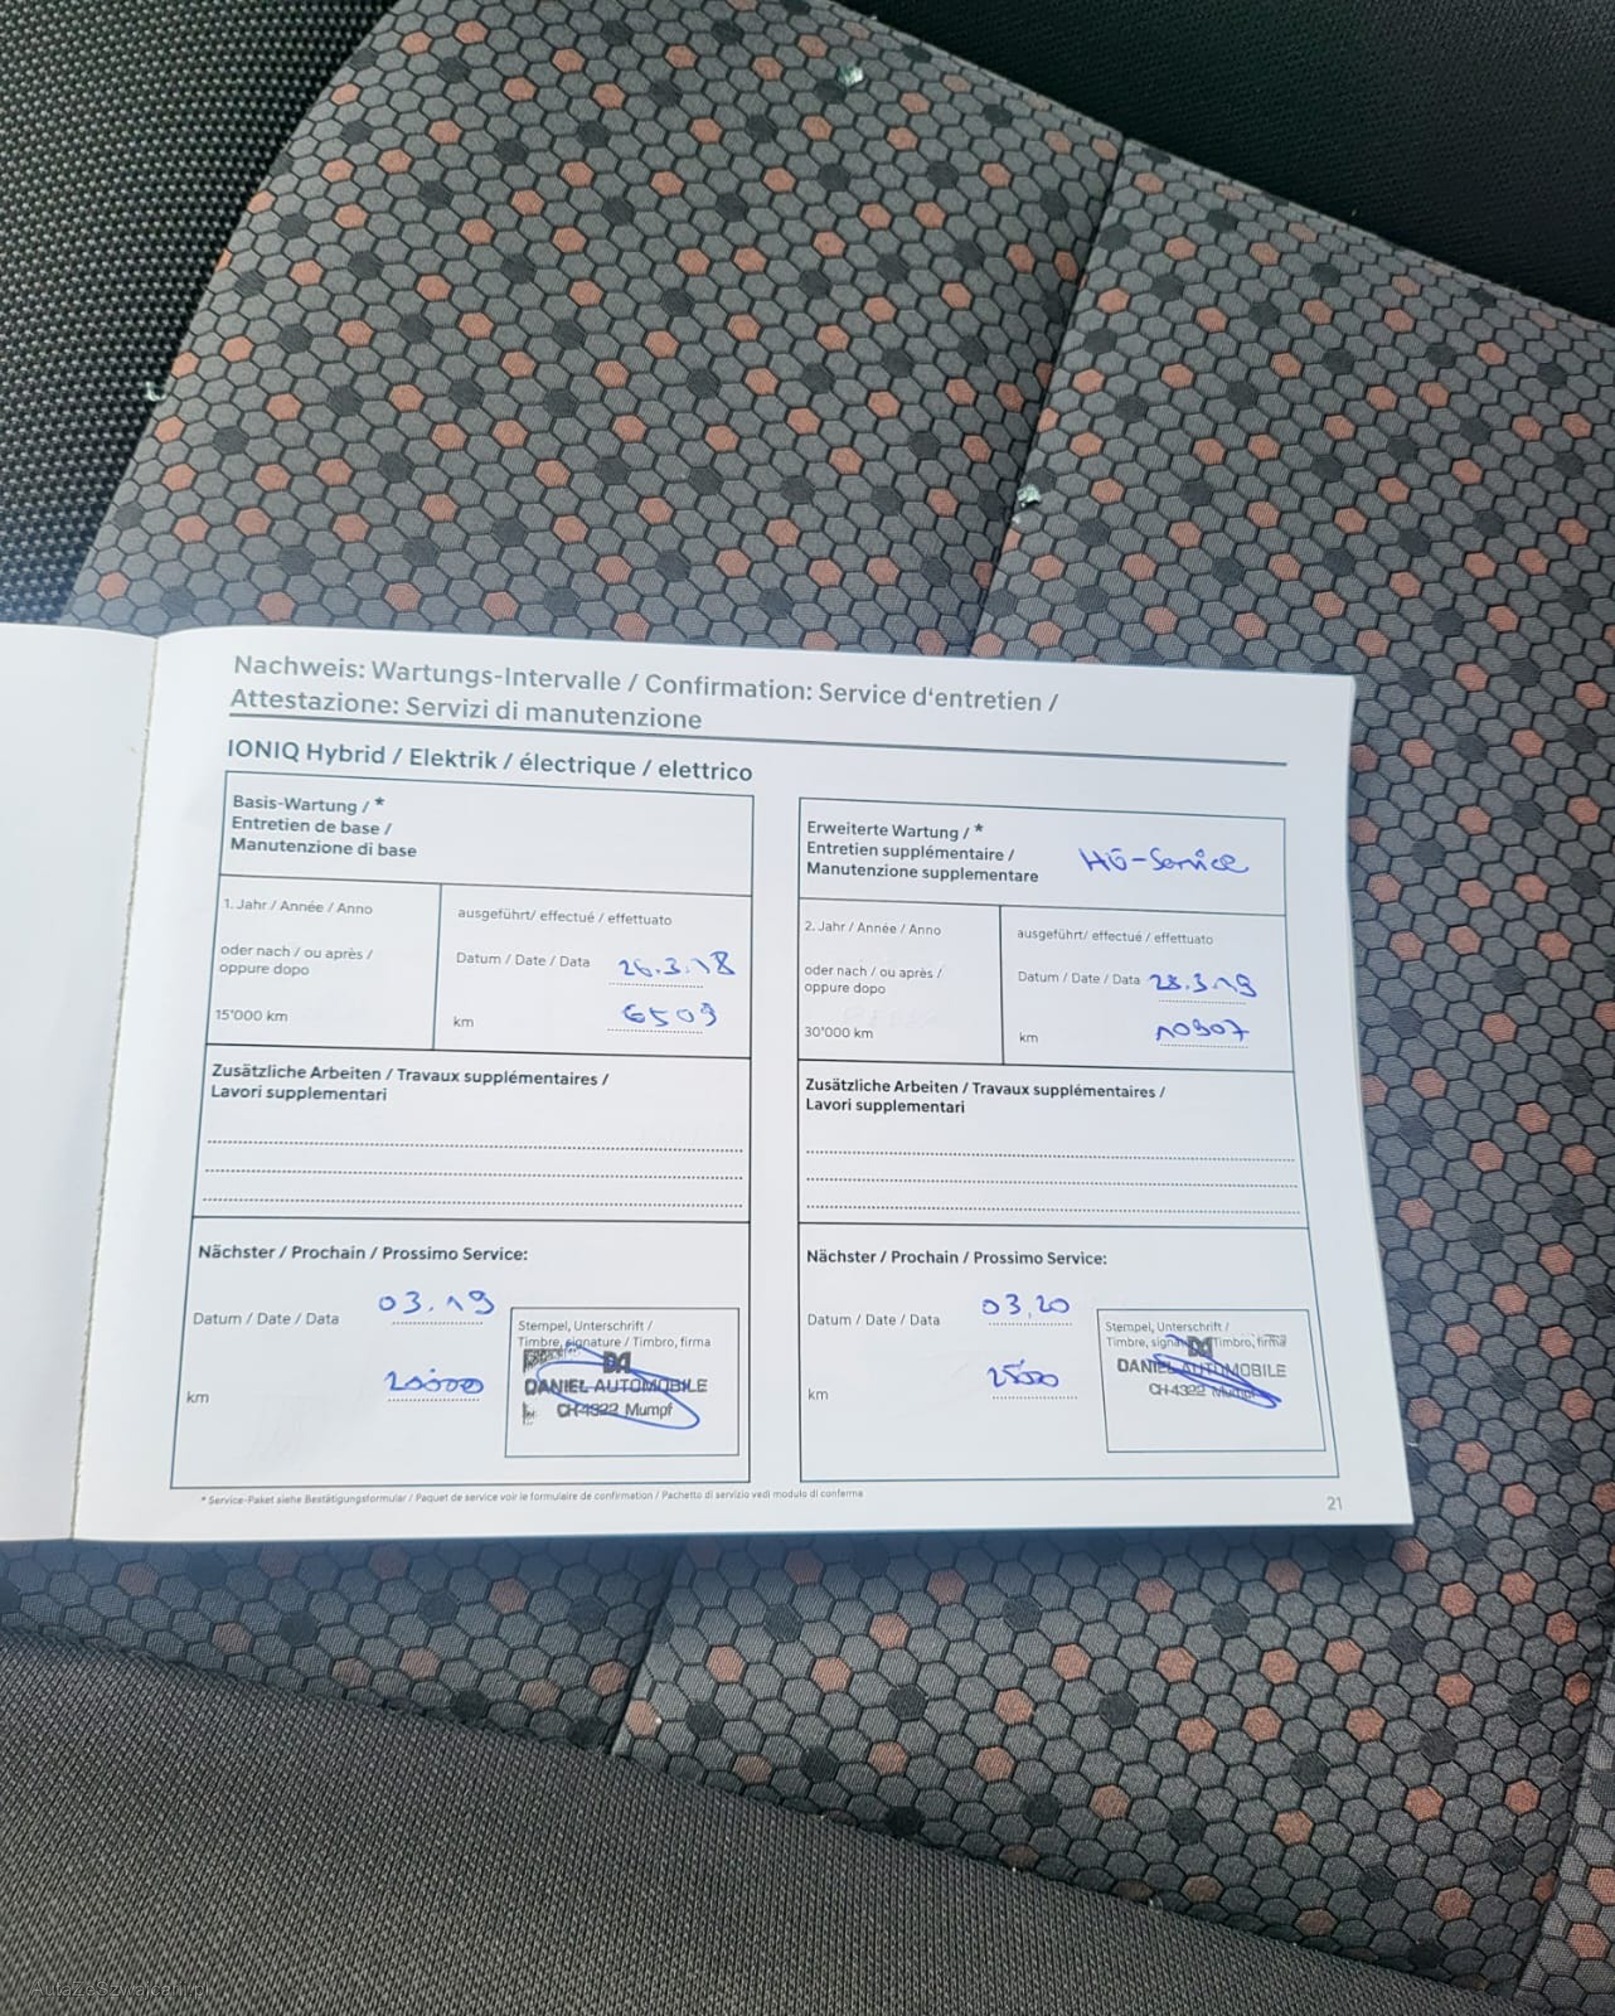 Nachweis: Wartungs-Intervalle / Confirmation: Service d'entretien /
Attestazione: Servizi di manutenzione
IONIQ Hybrid / Elektrik / électrique / elettrico
Basis-Wartung / *
Entretien de base /
Manutenzione di base
1. Jahr / Année / Anno
oder nach / ou après /
oppure dopo
15'000 km
ausgeführt/ effectué / effettuato
Datum / Date / Data 26.3.18
km 6509
Zusätzliche Arbeiten / Travaux supplémentaires /
Lavori supplementari
Nächster / Prochain / Prossimo Service:
Datum / Date / Data 03.19
km 20000
Stempel, Unterschrift /
Timbre, signature / Timbro, firma
DANIEL AUTOMOBILE
CH-4322 Mumpf
Erweiterte Wartung / *
Entretien supplémentaire /
Manutenzione supplementare
HÜ-Service
2. Jahr / Année / Anno
oder nach / ou après /
oppure dopo
30'000 km
ausgeführt/ effectué / effettuato
Datum / Date / Data 28.3.19
km 10907
Zusätzliche Arbeiten / Travaux supplémentaires /
Lavori supplementari
Nächster / Prochain / Prossimo Service:
Datum / Date / Data 03.20
km 25000
Stempel, Unterschrift /
Timbre, signature / Timbro, firma
DANIEL AUTOMOBILE
CH-4322 Mumpf
* Service-Paket siehe Bestätigungsformular / Paquet de service voir le formulaire de confirmation / Pachetto di servizio vedi modulo di conferma
21
AutaZeSzwajcarii.pl